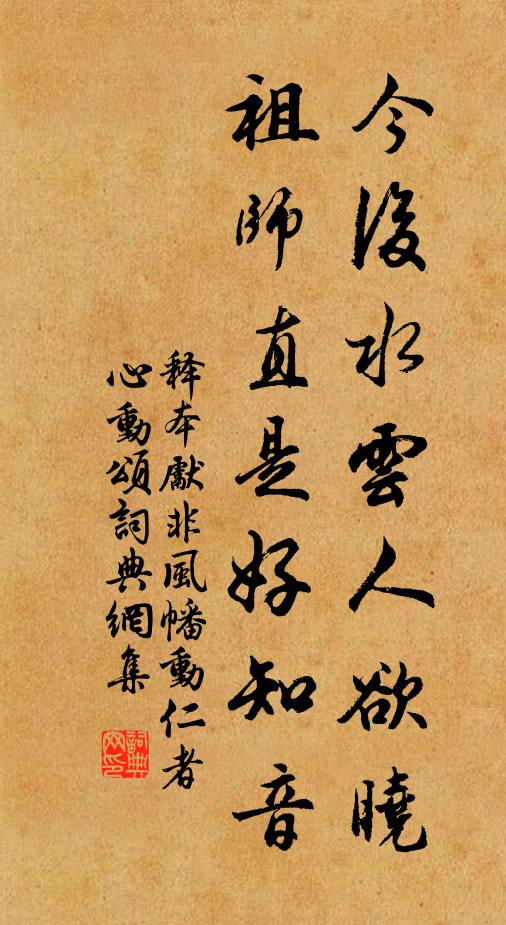 今後水雲人欲曉
祖師直是好知音
释本獻非風幡動仁者
心動頌詞典網集
詞典
网印